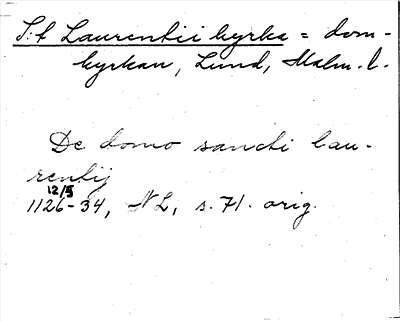 S:t Laurentii kyrka = dom-
kyrkan, Lund, Malm. l.
De domo sancti lau-
rentij
12/5
1126-34, NL, s. 71. orig.